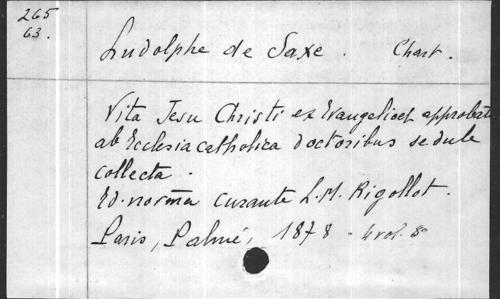 265
63.
Ludolphe de Saxe. Chart.
Vita Jesu Christi ex Evangelio et approbatis
ab Ecclesia catholica doctoribus sedule
collecta.
Ed. norma curante L.M. Rigollot.
Paris, Palmé, 1878 - 4 vol. 8º